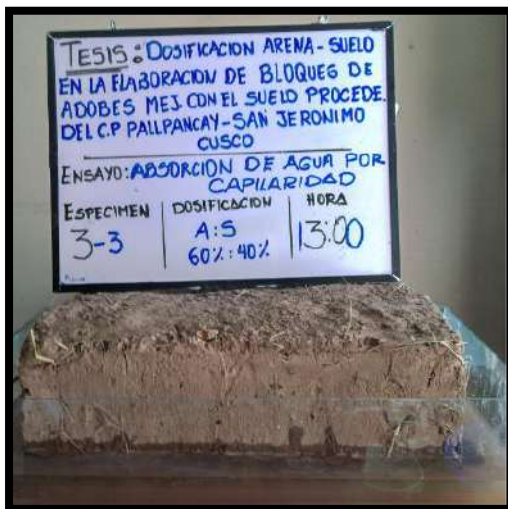 TESIS: DOSIFICACION ARENA-SUELO
EN LA ELABORACION DE BLOQUES DE
ADOBES MEJ. CON EL SUELO PROCEDE.
DEL C.P PALLPANCAY-SAN JERONIMO
CUSCO
ENSAYO: ABSORCION DE AGUA POR
CAPILARIDAD
ESPECIMEN DOSIFICACION HORA
3-3 A:S 13:00
60%:40%